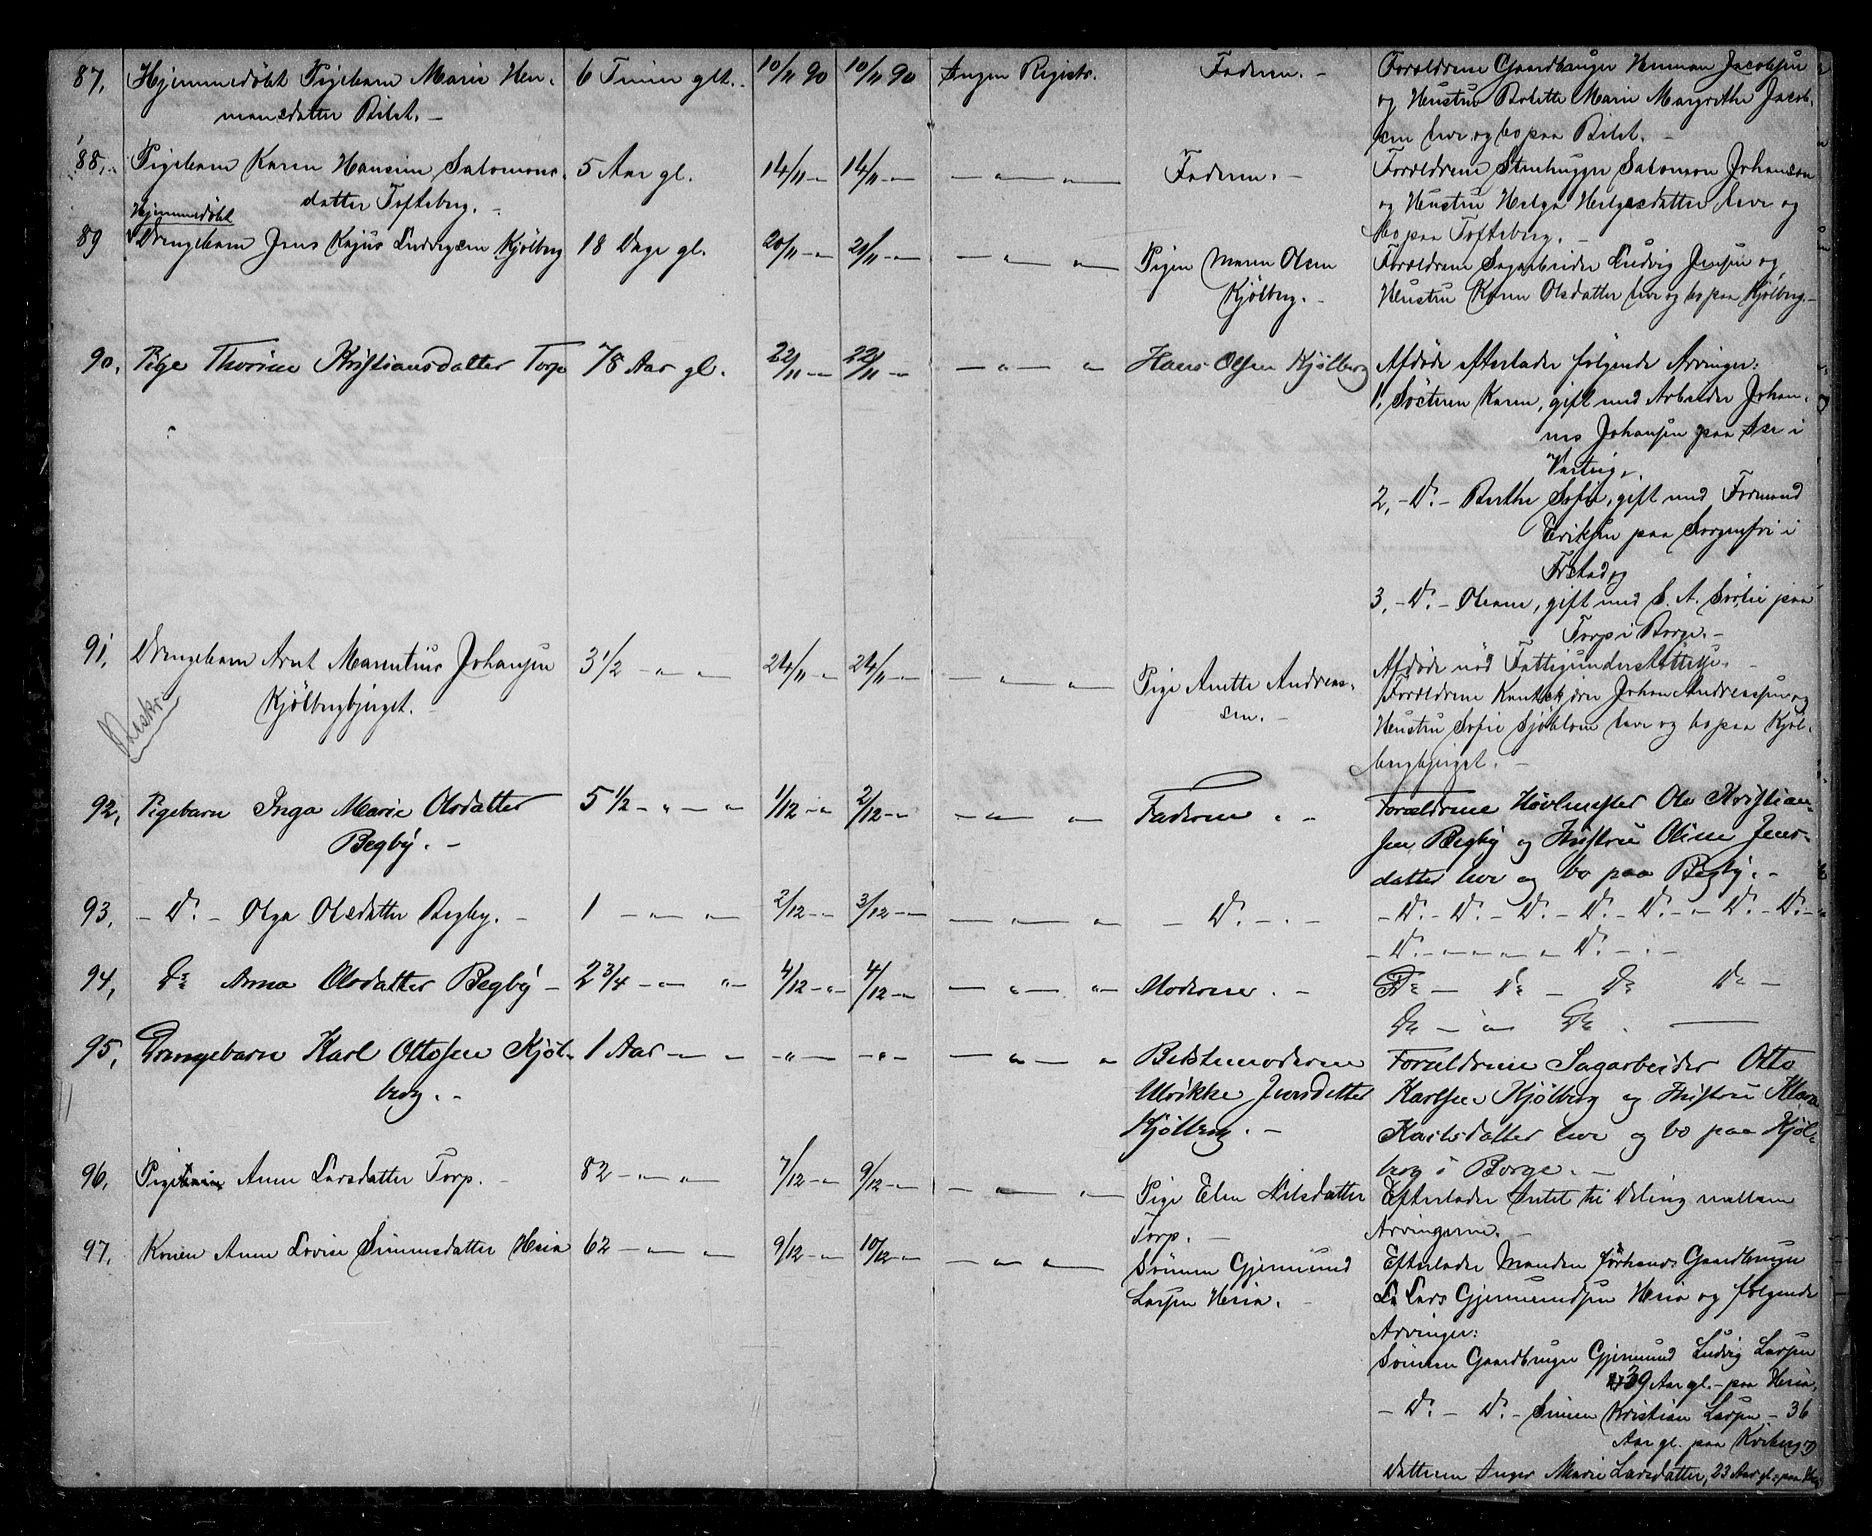 87, Hjemmedøbt Pigebarn Marie Her- 6 Timer glt. 10/11 90 10/11 90 Ingen Registr. Faderen. - Forældrene Gaardbruger Herman Jacobsen
mansdatter Bilet. - og Hustru Bolette Marie Margrethe Jacob-
sen leve og bo paa Bilet. -
88, Pigebarn Karen Hansine Salomons- 5 Aar gl. 14/11 -"- 14/11 -"- - " - " - Faderen. - Forældrene Stenhugger Salomon Johansen
datter Tofteberg. - og Hustru Helga Helgesdatter leve og
bo paa Tofteberg. -
Hjemmedøbt
89 Drengebarn Jens Kajus Ludvigsen Kjølberg 18 Dage gl. 20/11 -"- 21/11 -"- - " - " - Pigen Maren Olsen Forældrene Sagarbeider Ludvig Jensen og
Kjølberg. - Hustru Karen Olsdatter leve og bo paa Kjølberg. -
90, Pige Thorine Kristiansdatter Torp 78 Aar gl. 22/11 -"- 22/11 -"- - " - " Hans Olsen Kjølberg Afdøde efterlader følgende Arvinger:
1, Søsteren Karen, gift med Arbeider Johan-
nes Johansen paa i
Varteig,
2, - Do - Berthe Sofie, gift med Formand
Eriksen paa Sorgenfri i
3, - Do - Oleane, gift med S. A. Sørlie paa
Torp i Borge. -
Afdøde nød Fattigunderstøttelse. -
91, Drengebarn Arnt Marentius Johansen 3 1/2 - " - " 24/11 -"- 24/11 -"- - " - " - Pige Anette Andreas- Forældrene Johan Andreassen og
Kjølbergbjerget. - sen. - Hustru Sofie Sjøblom leve og bo paa Kjøl-
bergbjerget. -
92, Pigebarn Inga Marie Olsdatter 5 1/2 - " - " 1/12 -"- 2/12 -"- - " - " Faderen . - Forældrene Høvlmester Ole Kristian-
Begby. - sen Begby og Hustru Oline Jens-
datter leve og bo paa Begby. -
93, - Do - Olga Olsdatter Begby. - 1 - " - " 2/12 -"- 3/12 -"- - " - " - Do - . - - Do - Do - Do - Do - Do - " - Do - Do - "
- Do - " - " - " Do - . -
94, Do Anna Olsdatter Begby - 2 3/4 - " - " 4/12 -"- 4/12 -"- - " - "- Moderen . - Do - Do - Do Do -
Do - " - Do . -
95, Drengebarn Karl Ottosen Kjøl- 1 Aar - " - " - " - - " - - " - " Bedstemoderen Forældrene Sagarbeider Otto
berg. - Ulrikke Jensdatter Karlsen Kjølberg og Hustru Klara
Kjølberg. - Karlsdatter leve og bo paa Kjøl-
berg i Borge. -
96, Pige Anne Larsdatter Torp. - 82 - " - " 7/12 -"- 9/12 -"- - " - " - Pige Elen Nilsdatter Efterlader Intet til Deling mellem
Torp. - Arvingerne. -
97, Konen Anne Lovise Simensdatter Heia 62 - " - " 9/12 -"- 10/12 -"- - " - " - Sønnen Gjermund Efterlader Manden forhenv. Gaardbruger
Larsen Heia. - Lars Gjermundsen Heia og følgende
Arvinger:
Sønnen Gaardbruger Gjermund Ludvig Larsen
39 Aar gl. - paa Heia,
- Do - Do - Simen Kristian Larsen - 36
Aar gl. paa og
Datteren Inger Marie Larsdatter, 23 Aar gl., paa Heia